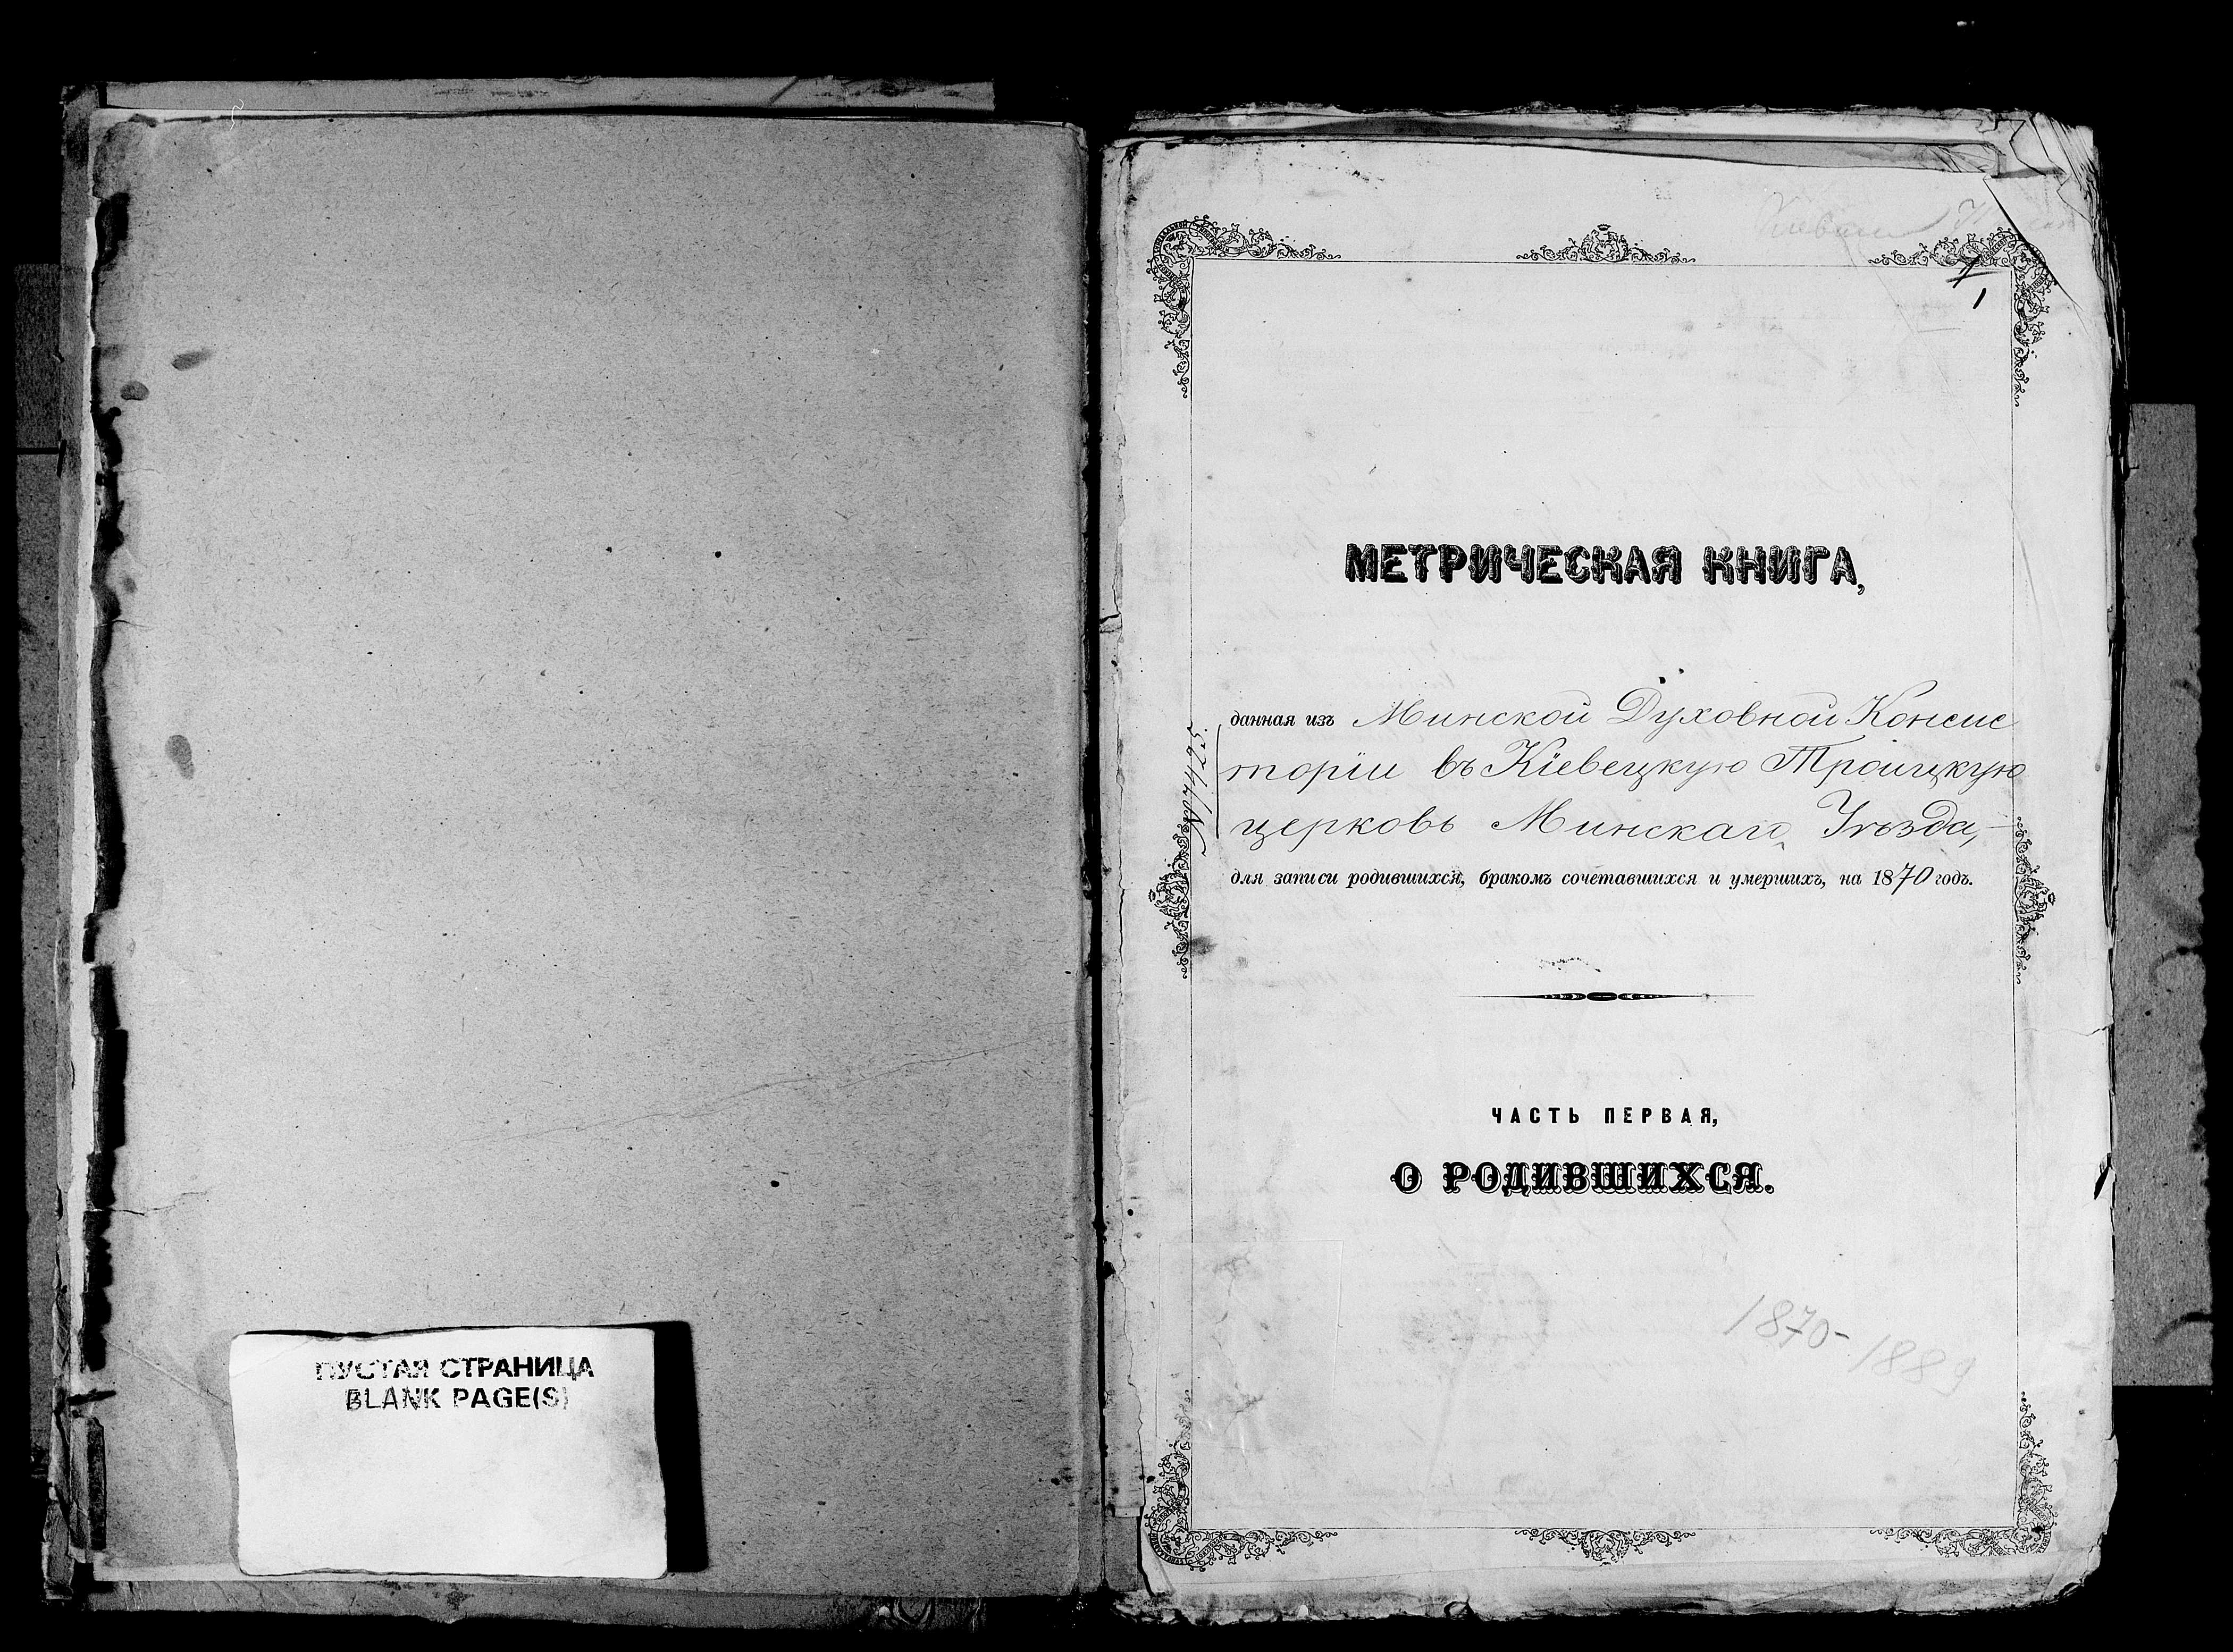 ПУСТАЯ СТРАНИЦА
BLANK PAGE(S)
1
МЕТРИЧЕСКАЯ КНИГА,
данная изъ Минской Духовной Консис
торіи въ Кіевецкую Троицкую
церковь Минскаго Уѣзда,
для записи родившихся, бракомъ сочетавшихся и умершихъ, на 1870 годъ.
ЧАСТЬ ПЕРВАЯ,
О РОДИВШИХСЯ.
1870-1889